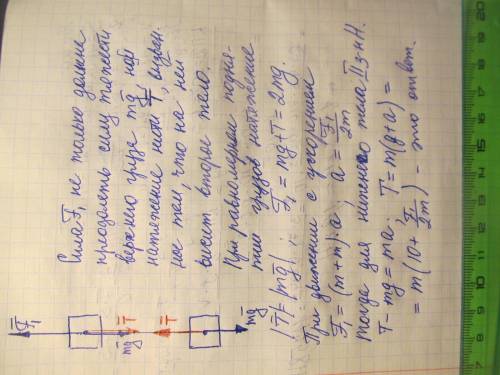 Сила F₁ не только должна
преодолеть силу тяжести
верхнего груза mg, но и
натяжение нити T, вызван-
ное тем, что на ней
висит второе тело.
При равномерном подня-
тии грузов натяжение
|T|=|mg|. F₁ = mg+T=2mg.
При движении с ускорением
F₁ = (m+m)·a; a = F₁/2m
Тогда для нижнего тела II з-н Н.
T - mg = ma. T = m(g+a) =
= m(10+ F₁/2m) - это ответ.
F₁
T
mg
T
mg